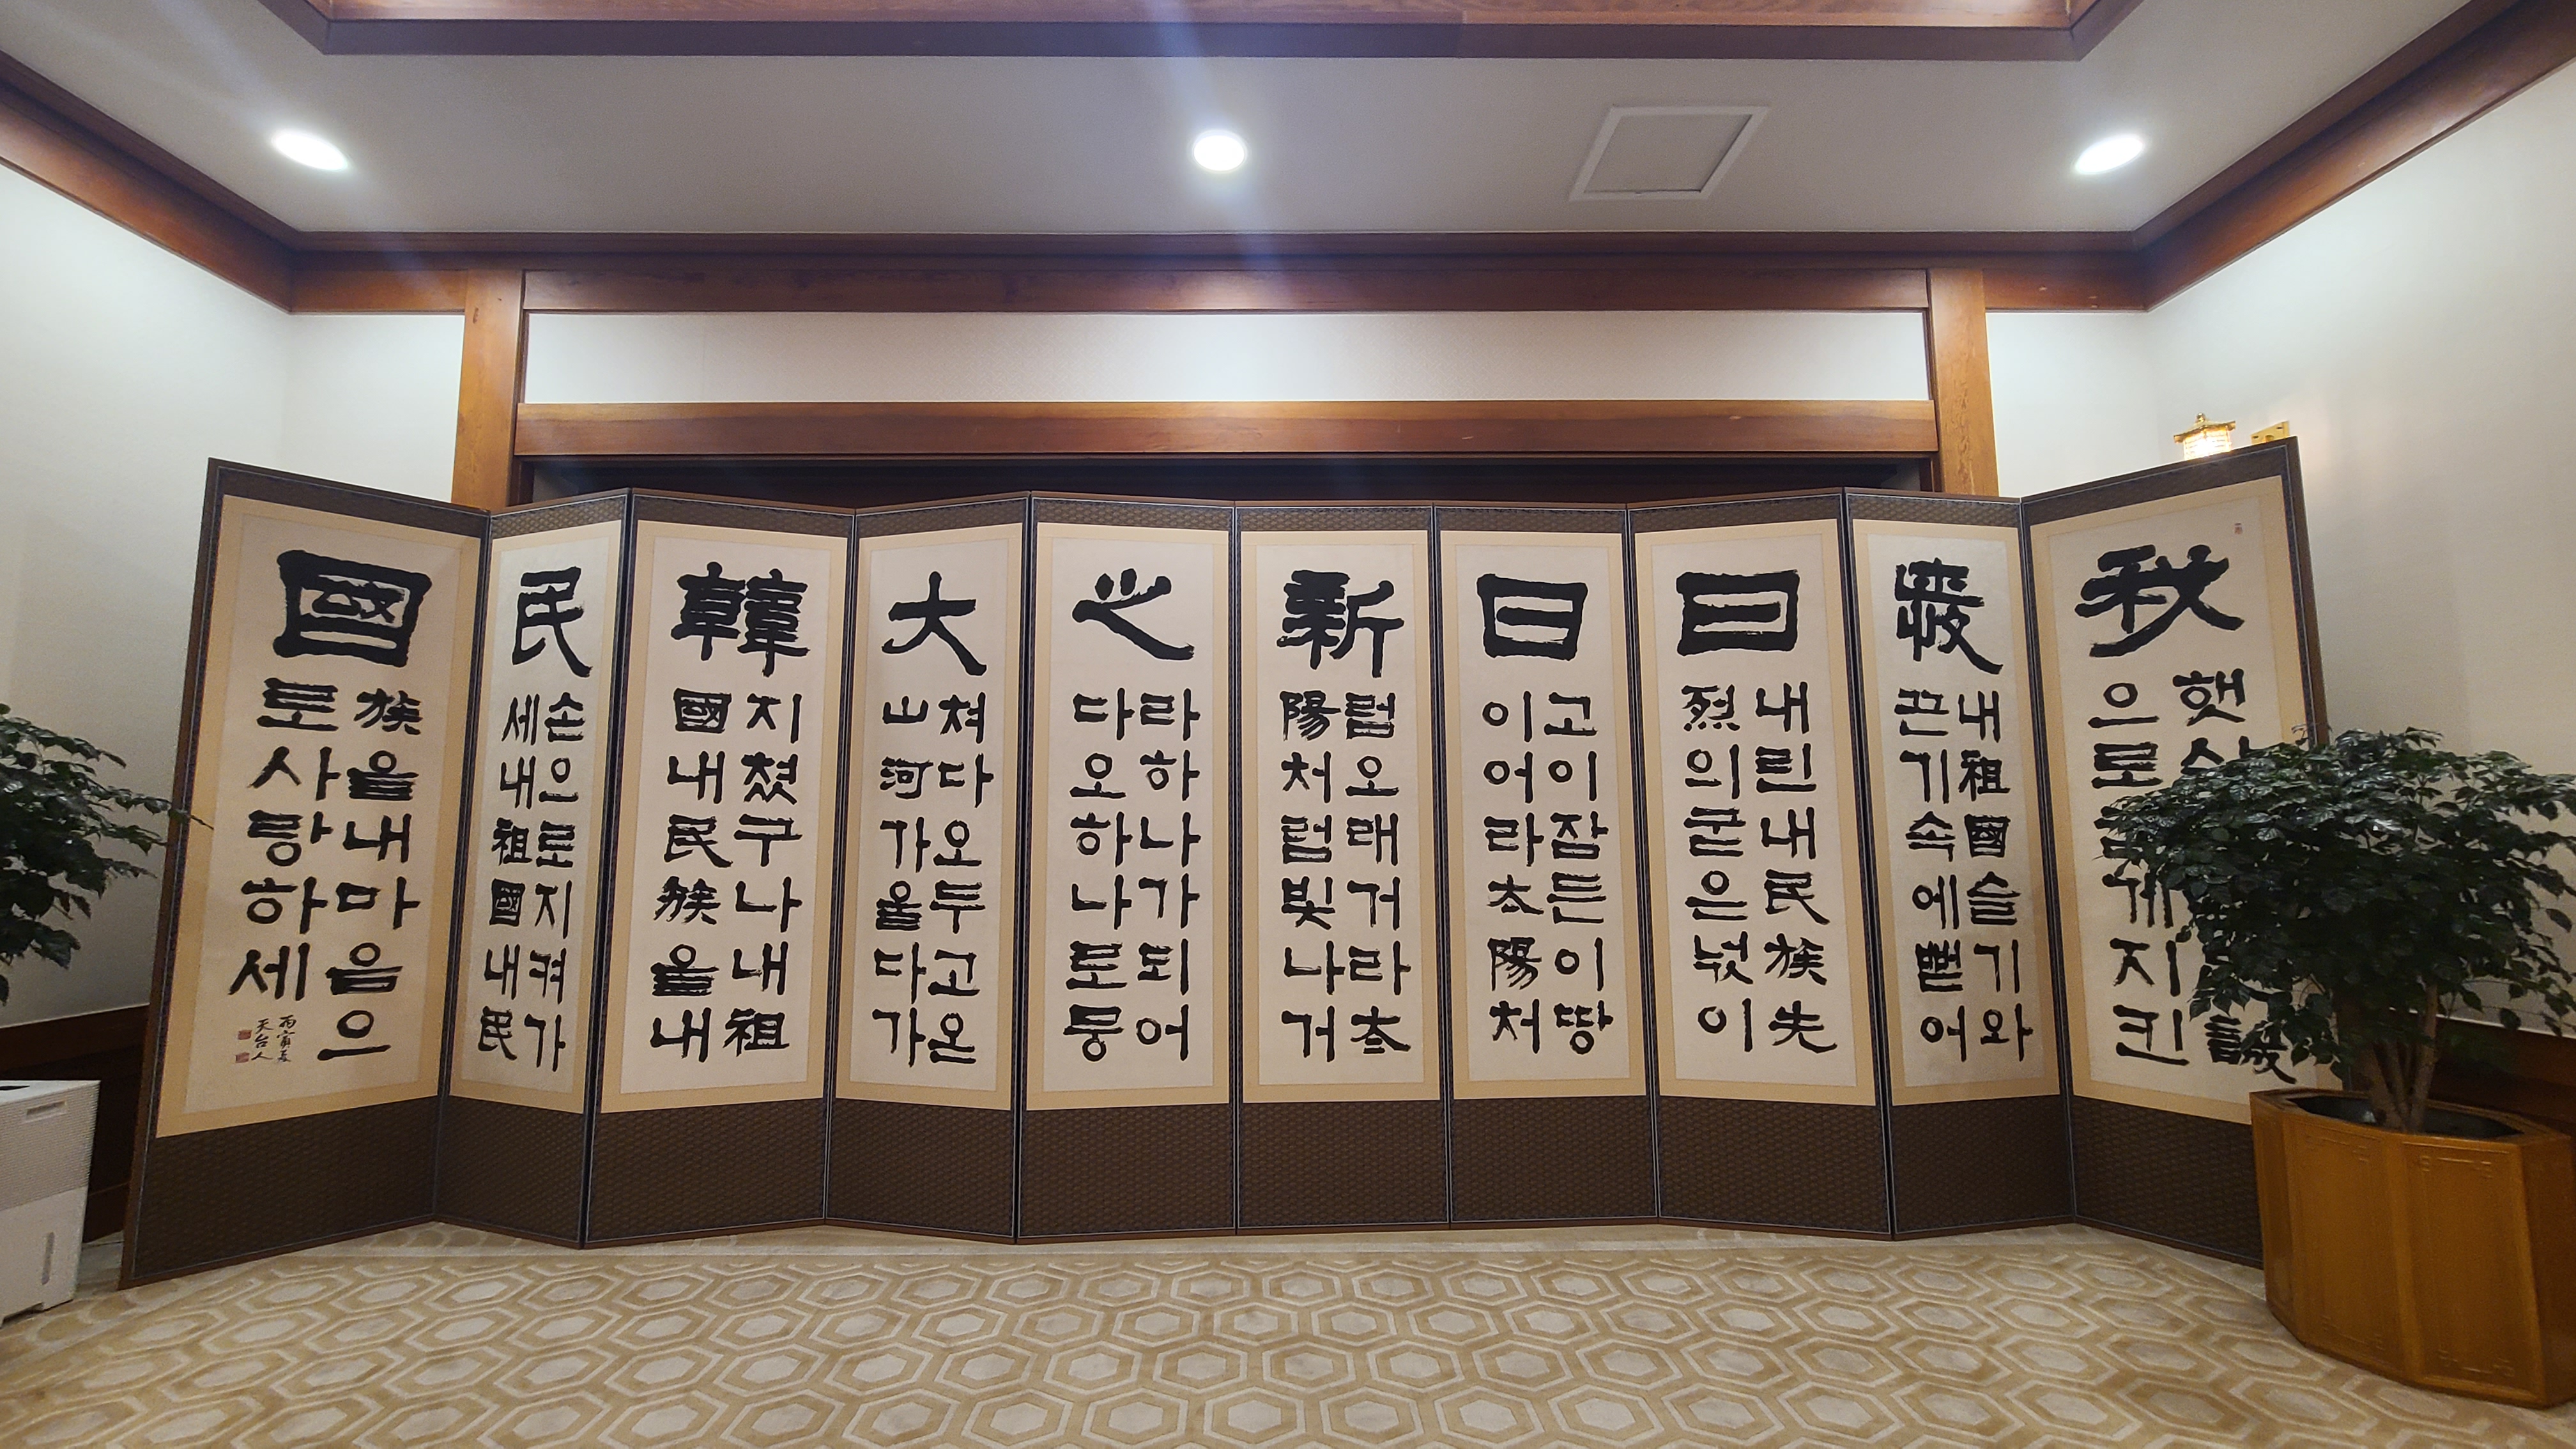 我
햇
으로
지킨
誠
愛
내祖國슬기와
끈기속에뻗어
日
내린내民族先
烈의굳은넋이
日
고이잠든이땅
이어라太陽처
新
럼오래거라太
陽처럼빛나거
之
라하나가되어
다오하나로뭉
大
쳐다오두고온
山河가울다가
韓
지쳤구나내祖
國내民族을내
民
손으로지켜가
세내祖國내民
國
族을내마음으
로사랑하세
丙寅夏
天台人